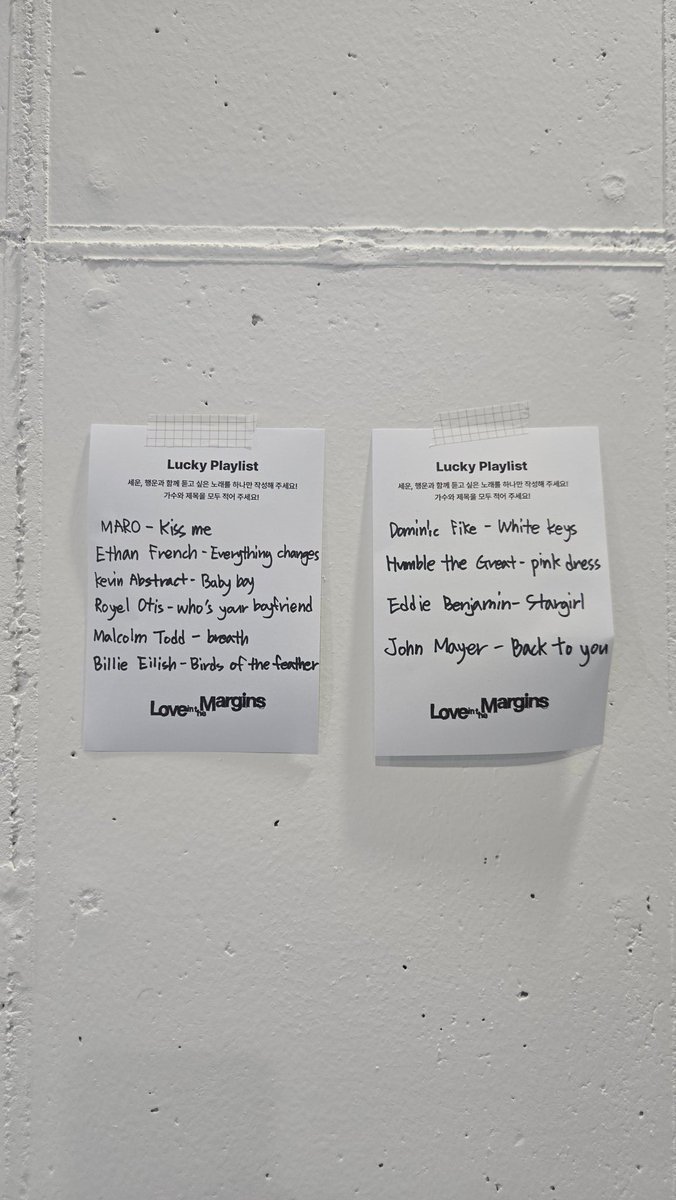 Lucky Playlist
세운, 행운과 함께 듣고 싶은 노래를 하나만 작성해 주세요!
가수와 제목을 모두 적어 주세요!
MARO - Kiss me
Ethan French - Everything changes
kevin Abstract - Baby boy
Royel Otis - who's your boyfriend
Malcolm Todd - breath
Billie Eilish - Birds of the feather
Love in the Margins
Lucky Playlist
세운, 행운과 함께 듣고 싶은 노래를 하나만 작성해 주세요!
가수와 제목을 모두 적어 주세요!
Dominic Fike - White keys
Humble the Great - pink dress
Eddie Benjamin - Stargirl
John Mayer - Back to you
Love in the Margins